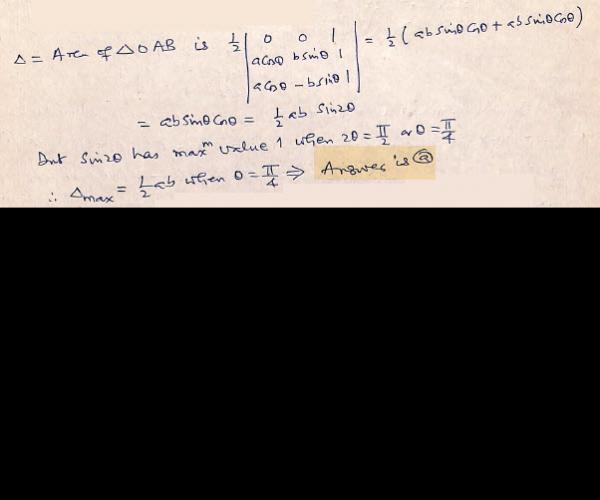 Δ = Area of Δ OAB is 1/2 | 0 0 1 | = 1/2 (ab sinθ cosθ + ab sinθ cosθ)
| a cosθ b sinθ 1 |
| a cosθ - b sinθ 1 |
= ab sinθ cosθ = 1/2 ab sin2θ
But sin2θ has maxᵐ value 1 when 2θ = π/2 or θ = π/4
∴ Δmax = 1/2 ab when θ = π/4 ⇒ Answer is ⓐ